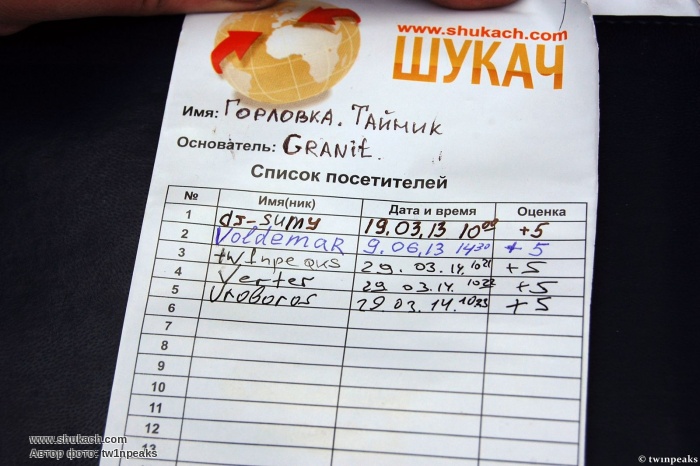 www.shukach.com
ШУКАЧ
Имя: Горловка. Тайник
Основатель: Granit.
Список посетителей
№ Имя(ник) Дата и время Оценка
1 dj-sumy 19.03.13 10 00 +5
2 Voldemar 9.06.13 14 30 +5
3 tw1npeaks 29.03.14. 10 21 +5
4 Verter 29 03.14. 10 22 +5
5 Uroboros 29 03.14. 10 23 +5
6
7
8
9
10
11
12
13
www.shukach.com
Автор фото: tw1npeaks
© tw1npeaks